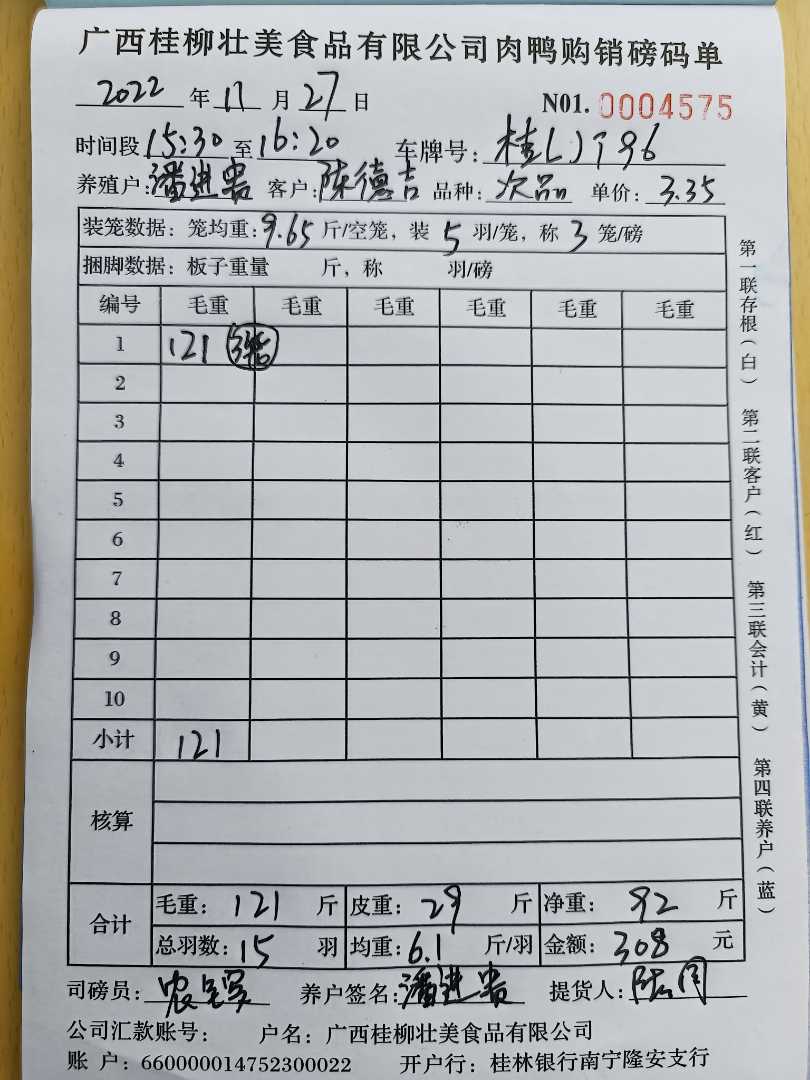 广西桂柳壮美食品有限公司肉鸭购销磅码单
2022 年 11 月 27 日 N01. 0004575
时间段 15:30 至 16:20 车牌号: 桂L
养殖户: 潘进 客户: 陈德吉 品种: 次品 单价: 3.35
装笼数据: 笼均重: 9.65 斤/空笼, 装 5 羽/笼, 称 3 笼/磅
捆脚数据: 板子重量 斤, 称 羽/磅
编号 毛重 毛重 毛重 毛重 毛重 毛重
1 121
2
3
4
5
6
7
8
9
10
小计 121
核算
合计 毛重: 121 斤 皮重: 29 斤 净重: 92 斤
总羽数: 15 羽 均重: 6.1 斤/羽 金额: 308 元
司磅员: 农 养户签名: 潘进 提货人:
公司汇款账号: 户名: 广西桂柳壮美食品有限公司
账 户: 660000014752300022 开户行: 桂林银行南宁隆安支行
第一联存根(白)
第二联客户(红)
第三联会计(黄)
第四联养户(蓝)